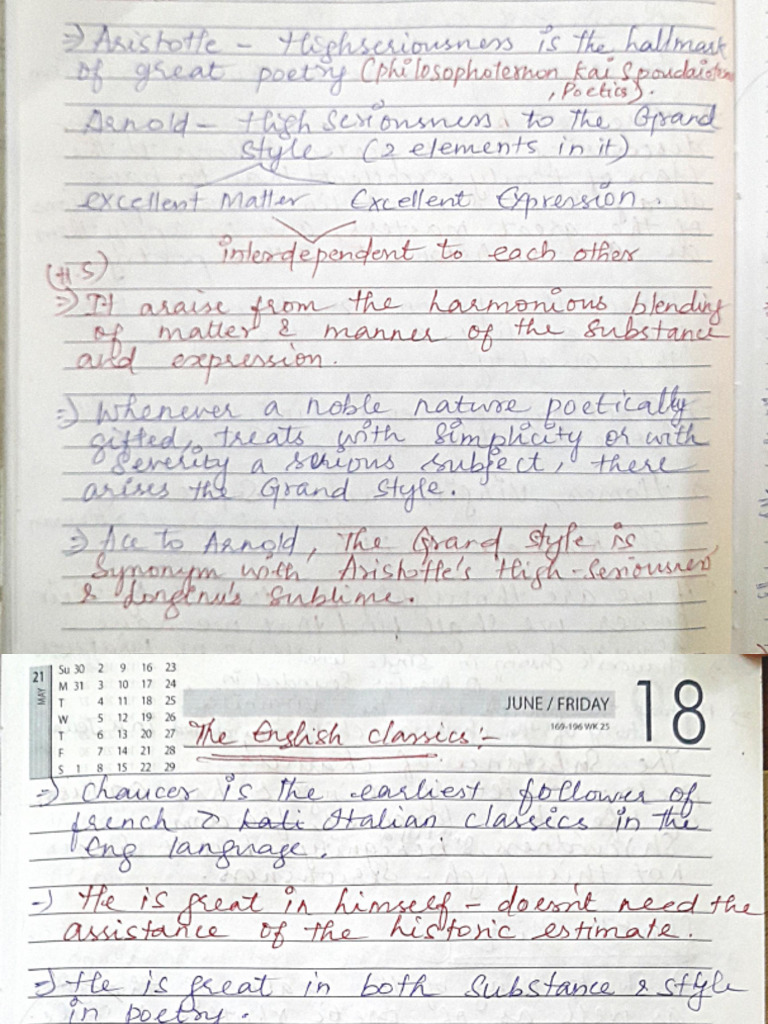 ⇒ Aristotle - Highseriousness is the hallmark
of great poetry (philosophoternon kai Spoudaiotern
, Poetics).
Arnold - High Seriousness to the Grand
Style (2 elements in it)
excellent Matter Excellent Expression.
interdependent to each other
(H S)
⇒ It araise from the harmonious blending
of matter & manner of the substance
and expression.
⇒ Whenever a noble nature poetically
gifted, treats with simplicity or with
Severity a serious subject, there
arises the Grand Style.
⇒ Acc to Arnold, The Grand Style is
Synonym with Aristotle's High-Seriousness
& Longinu's Sublime.
21 MAY
Su 30 2 9 16 23
M 31 3 10 17 24
T 4 11 18 25
W 5 12 19 26
T 6 13 20 27
F 7 14 21 28
S 1 8 15 22 29
JUNE / FRIDAY 18
169-196 WK 25
The English classics :-
⇒ Chaucer is the earliest follower of
french & Lati Italian classics in the
Eng language.
⇒ He is great in himself - doesn't need the
assistance of the historic estimate.
⇒ He is great in both Substance & style
in poetry.